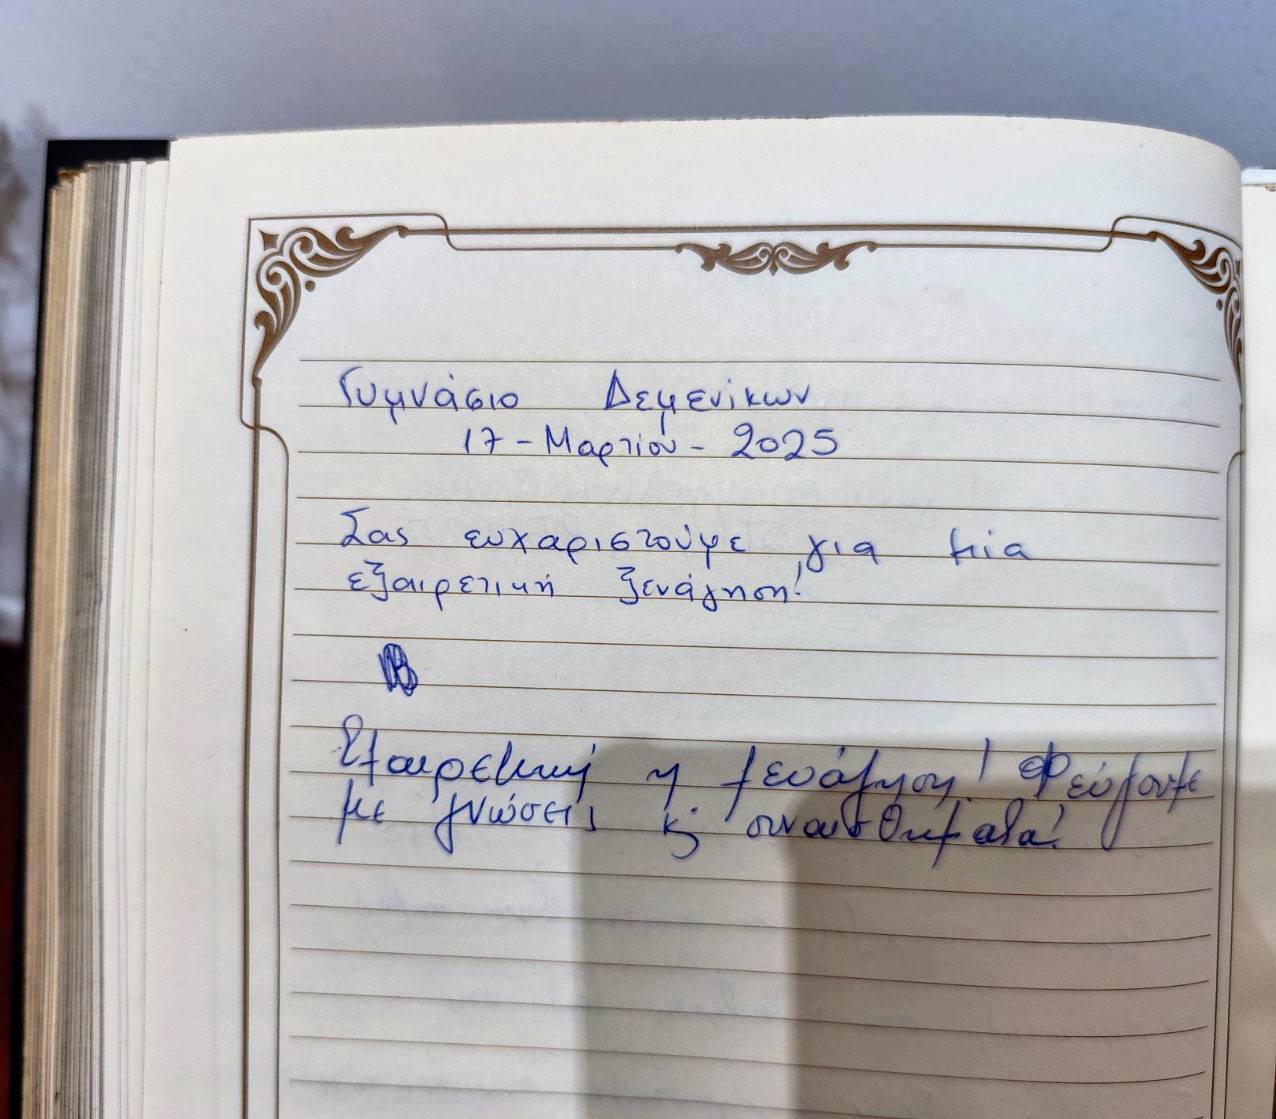 Γυμνάσιο Δεμενίκων
17 - Μαρτίου - 2025
Σας ευχαριστούμε για μία
εξαιρετική ξενάγηση!
Εξαιρετική η ξενάγηση! Φεύγουμε
με γνώσεις κ' συναισθήματα!